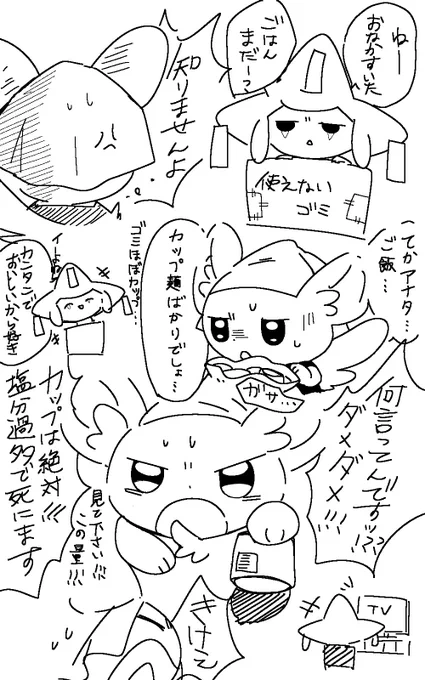 ねー
おなかすいた
ごはん
まだー?
知りませんよ
使えない
ゴミ
(てかアナタ…
ご飯…
カップ麺ばかりでしょ…
ゴミほぼカップ…
イーよね
カンタンで
おいしいから好き
ガサ…
何言ってんですッ!?!?
ダメダメ!!!
カップは絶対!!!
塩分過多で死にます
見て下さい!!!
この量!!!
きけえ
TV